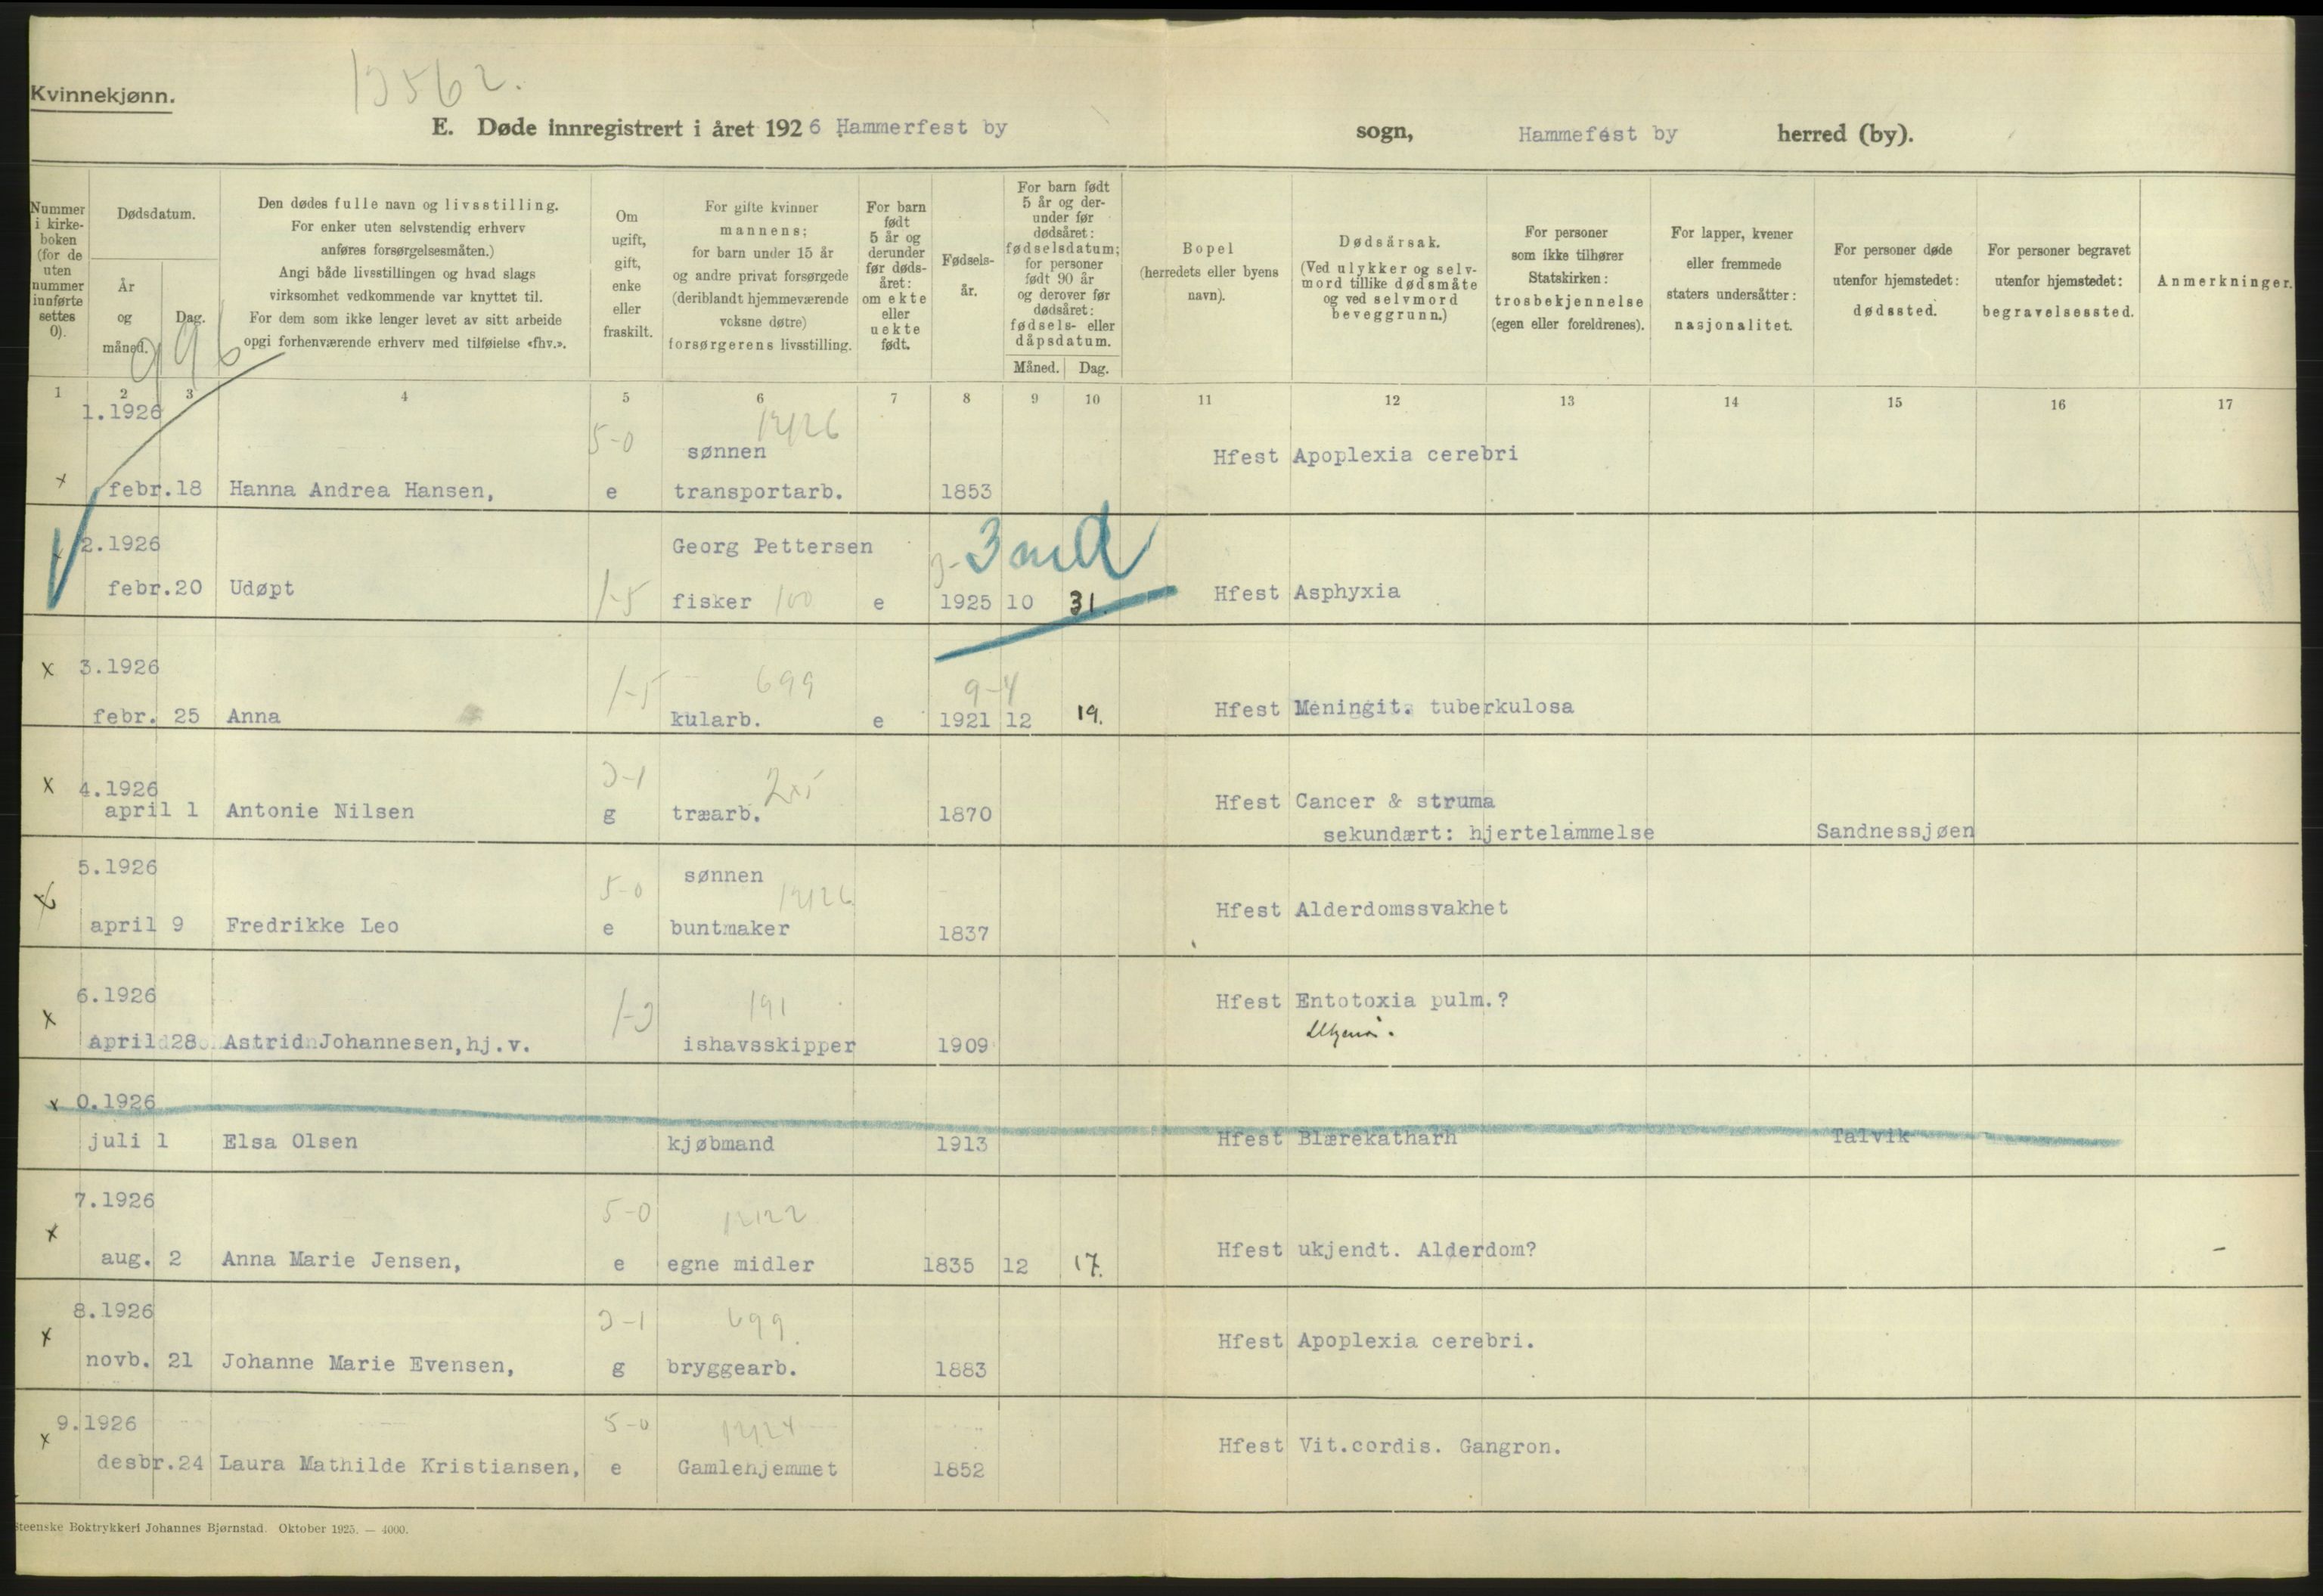 Kvinnekjønn.
13562.
E. Døde innregistrert i året 1926 Hammerfest by sogn, Hammefest by herred (by).
Nummer i kirkeboken (for de uten nummer innførte settes 0).
Dødsdatum.
År og måned.
Dag.
Den dødes fulle navn og livsstilling.
For enker uten selvstendig erhverv
anføres forsørgelsesmåten.)
Angi både livsstillingen og hvad slags
virksomhet vedkommende var knyttet til.
For dem som ikke lenger levet av sitt arbeide
opgi forhenværende erhverv med tilføielse «fhv.».
Om ugift, gift, enke eller fraskilt.
For gifte kvinner
mannens;
for barn under 15 år
og andre privat forsørgede
(deriblandt hjemmeværende
voksne døtre)
forsørgerens livsstilling.
For barn født 5 år og derunder før dødsåret: om ekte eller uekte født.
Fødselsår.
For barn født 5 år og derunder før dødsåret: fødselsdatum; for personer født 90 år og derover før dødsåret: fødsels- eller dåpsdatum.
Måned. Dag.
Bopel
(herredets eller byens
navn).
Dødsårsak.
(Ved ulykker og selvmord tillike dødsmåte og ved selvmord beveggrunn.)
For personer
som ikke tilhører
Statskirken:
trosbekjennelse
(egen eller foreldrenes).
For lapper, kvener
eller fremmede
staters undersåtter:
nasjonalitet.
For personer døde
utenfor hjemstedet:
dødssted.
For personer begravet
utenfor hjemstedet:
begravelsessted.
Anmerkninger.
996
1 2 3 4 5 6 7 8 9 10 11 12 13 14 15 16 17
1.1926
5-0 12126
sønnen
Hfest Apoplexia cerebri
x febr.18 Hanna Andrea Hansen, e transportarb. 1853
2.1926 Georg Pettersen 3 md
febr.20 Udøpt 1-5 fisker 100 e 1925 10 31. Hfest Asphyxia
x 3.1926
1-5 699 9-4
febr. 25 Anna kularb. e 1921 12 19. Hfest Meningit. tuberkulosa
x 4.1926
3-1
april 1 Antonie Nilsen g træarb. 1870 Hfest Cancer & struma
sekundært: hjertelammelse Sandnessjøen
5.1926
5-0 sønnen 12126
x april 9 Fredrikke Leo e buntmaker 1837 Hfest Alderdomssvakhet
6.1926
1-3 191 Hfest Entotoxia pulm.?
x april 28 Astrid Johannesen, hj.v. ishavsskipper 1909
x 0.1926
juli 1 Elsa Olsen kjøbmand 1913 Hfest Blærekatharh Talvik
7.1926
5-0 12122
x aug. 2 Anna Marie Jensen, e egne midler 1835 12 17. Hfest ukjendt. Alderdom? -
8.1926
3-1 699.
x novb. 21 Johanne Marie Evensen, g bryggearb. 1883 Hfest Apoplexia cerebri.
9.1926
5-0 12124
x desbr.24 Laura Mathilde Kristiansen, e Gamlehjemmet 1852 Hfest Vit.cordis. Gangron.
Steenske Boktrykkeri Johannes Bjørnstad. Oktober 1925. — 4000.